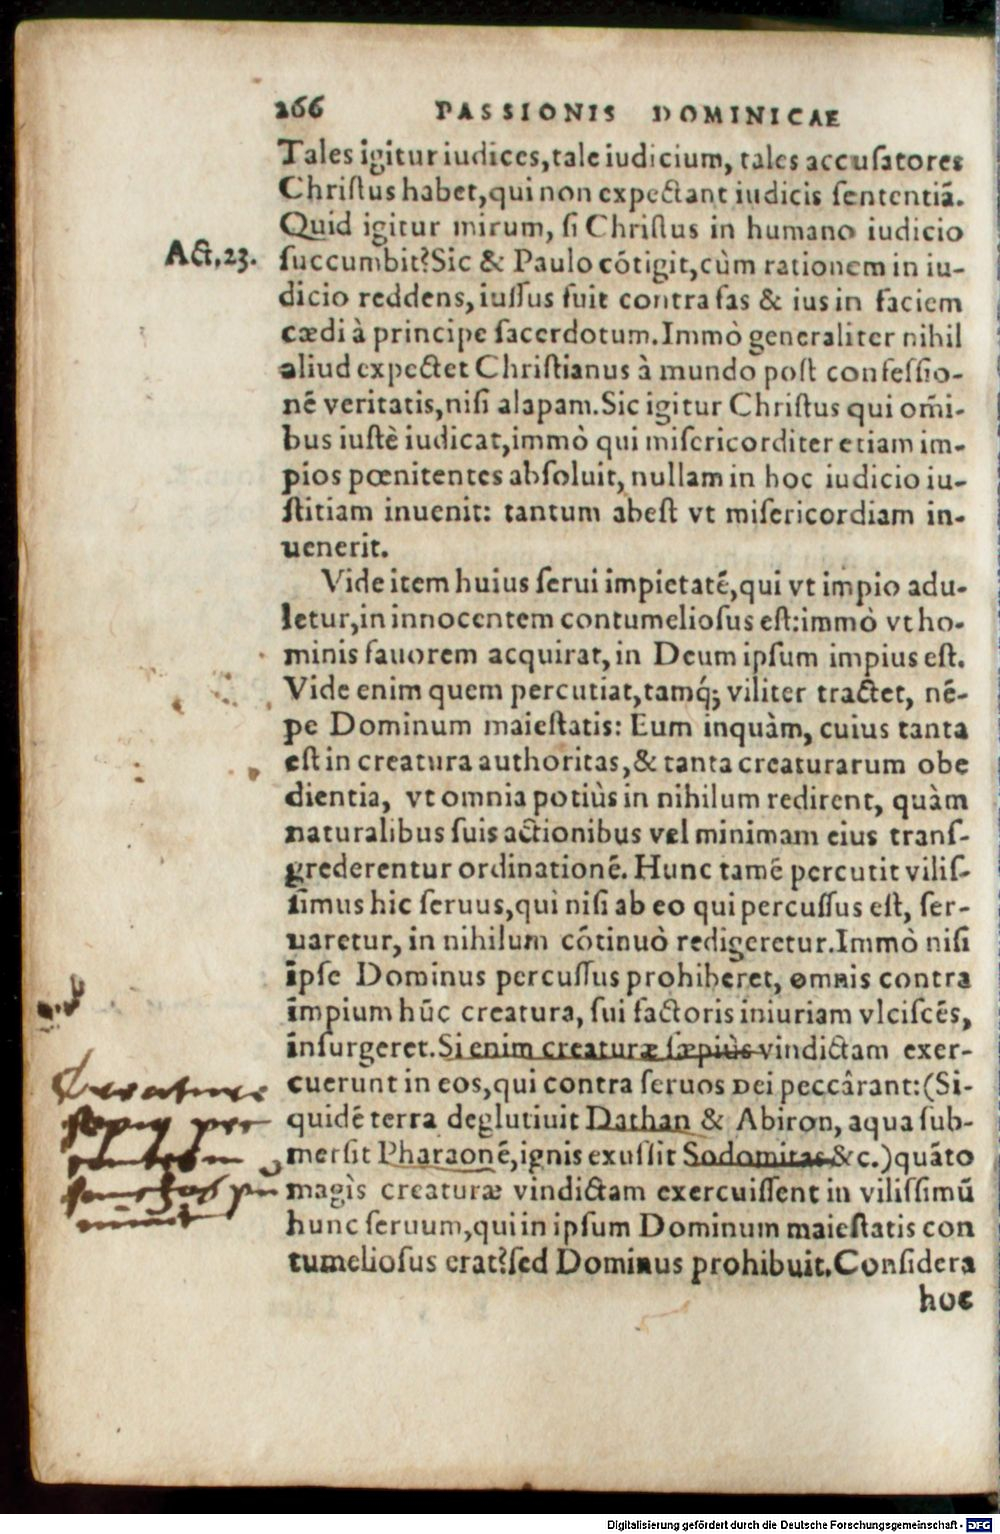 266 PASSIONIS DOMINICAE
Tales igitur iudices, tale iudicium, tales accuſatores
Chriſtus habet, qui non expectant iudicis ſententiā.
Quid igitur mirum, ſi Chriſtus in humano iudicio
Act. 23.
ſuccumbit? Sic & Paulo cōtigit, cùm rationem in iu-
dicio reddens, iuſſus fuit contra fas & ius in faciem
cædi à principe ſacerdotum. Immò generaliter nihil
aliud expectet Chriſtianus à mundo poſt confeſſio-
nē veritatis, niſi alapam. Sic igitur Chriſtus qui om̄i-
bus iuſtè iudicat, immò qui miſericorditer etiam im-
pios pœnitentes abſoluit, nullam in hoc iudicio iu-
ſtitiam inuenit: tantum abeſt vt miſericordiam in-
uenerit.
Vide item huius ſerui impietatē, qui vt impio adu-
letur, in innocentem contumelioſus eſt: immò vt ho-
minis fauorem acquirat, in Deum ipſum impius eſt.
Vide enim quem percutiat, tamq́; viliter tractet, nē-
pe Dominum maieſtatis: Eum inquàm, cuius tanta
eſt in creatura authoritas, & tanta creaturarum obe
dientia, vt omnia potiùs in nihilum redirent, quàm
naturalibus ſuis actionibus vel minimam eius tranſ-
grederentur ordinationē. Hunc tamē percutit viliſ-
ſimus hic ſeruus, qui niſi ab eo qui percuſſus eſt, ſer-
uaretur, in nihilum cōtinuò redigeretur. Immò niſi
ipſe Dominus percuſſus prohiberet, omnis contra
impium hūc creatura, ſui factoris iniuriam vlciſcēs,
inſurgeret. Si enim creaturæ ſæpiùs vindictam exer-
cuerunt in eos, qui contra ſeruos Dei peccârant: (Si-
quidē terra deglutiuit Dathan & Abiron, aqua ſub-
merſit Pharaonē, ignis exuſſit Sodomitas &c.) quāto
magìs creaturæ vindictam exercuiſſent in viliſſimū
hunc ſeruum, qui in ipſum Dominum maieſtatis con
tumelioſus erat? ſed Dominus prohibuit. Conſidera
hoc
Digitalisierung gefördert durch die Deutsche Forschungsgemeinschaft - DFG